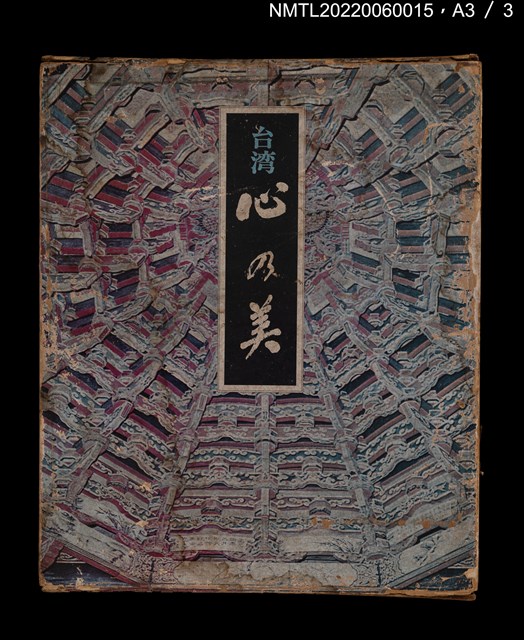 NMTL20220060015，A3 / 3
台湾
心の美